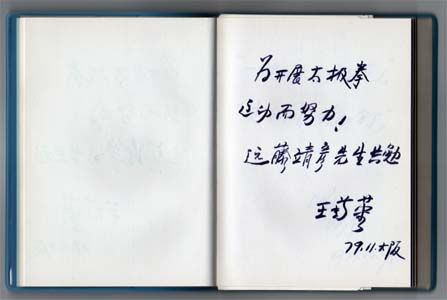 为开展太极拳
运动而努力!
远藤靖彦先生共勉
王菊蓉
79.11.大阪